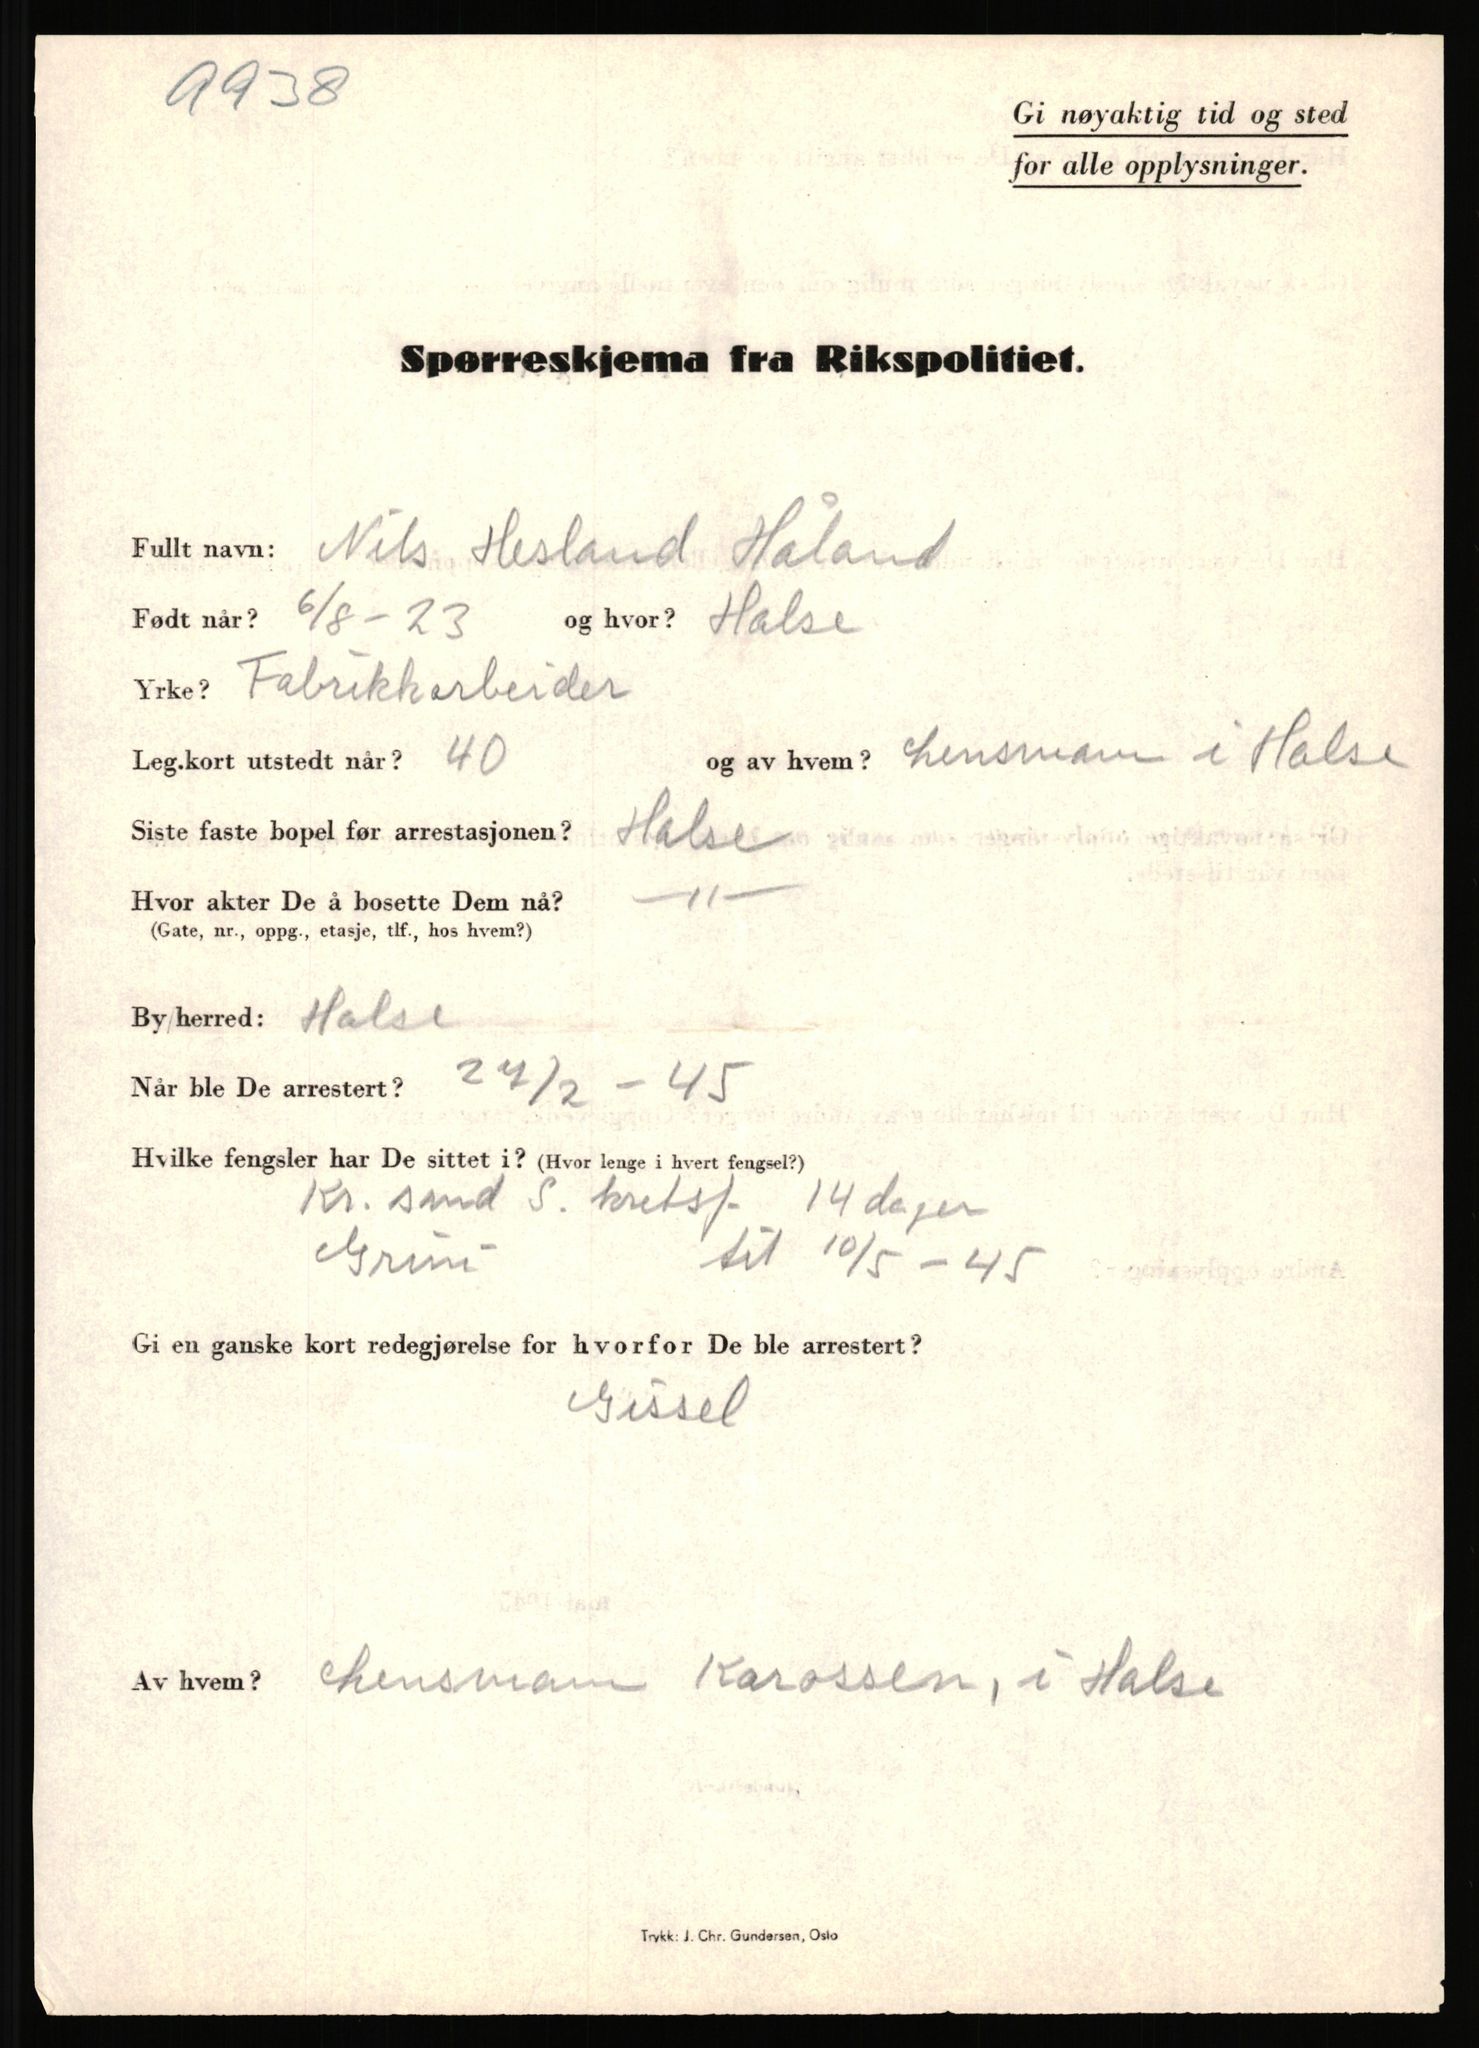 9938
Gi nøyaktig tid og sted
for alle opplysninger.
Spørreskjema fra Rikspolitiet.
Fullt navn: Nils Hesland Håland
Født når? 6/8-23 og hvor? Halse
Yrke? Fabrikkarbeider
Leg.kort utstedt når? 40 og av hvem? Lensmann i Halse
Siste faste bopel før arrestasjonen? Halse
Hvor akter De å bosette Dem nå? —"—
(Gate, nr., oppg., etasje, tlf., hos hvem?)
By/herred: Halse
Når ble De arrestert? 27/2-45
Hvilke fengsler har De sittet i? (Hvor lenge i hvert fengsel?)
Kr. sand S. kretsf. 14 dager
Grini til 10/5-45
Gi en ganske kort redegjørelse for hvorfor De ble arrestert?
Gissel
Av hvem? Lensmann Karossen, i Halse
Trykk: J. Chr. Gundersen, Oslo